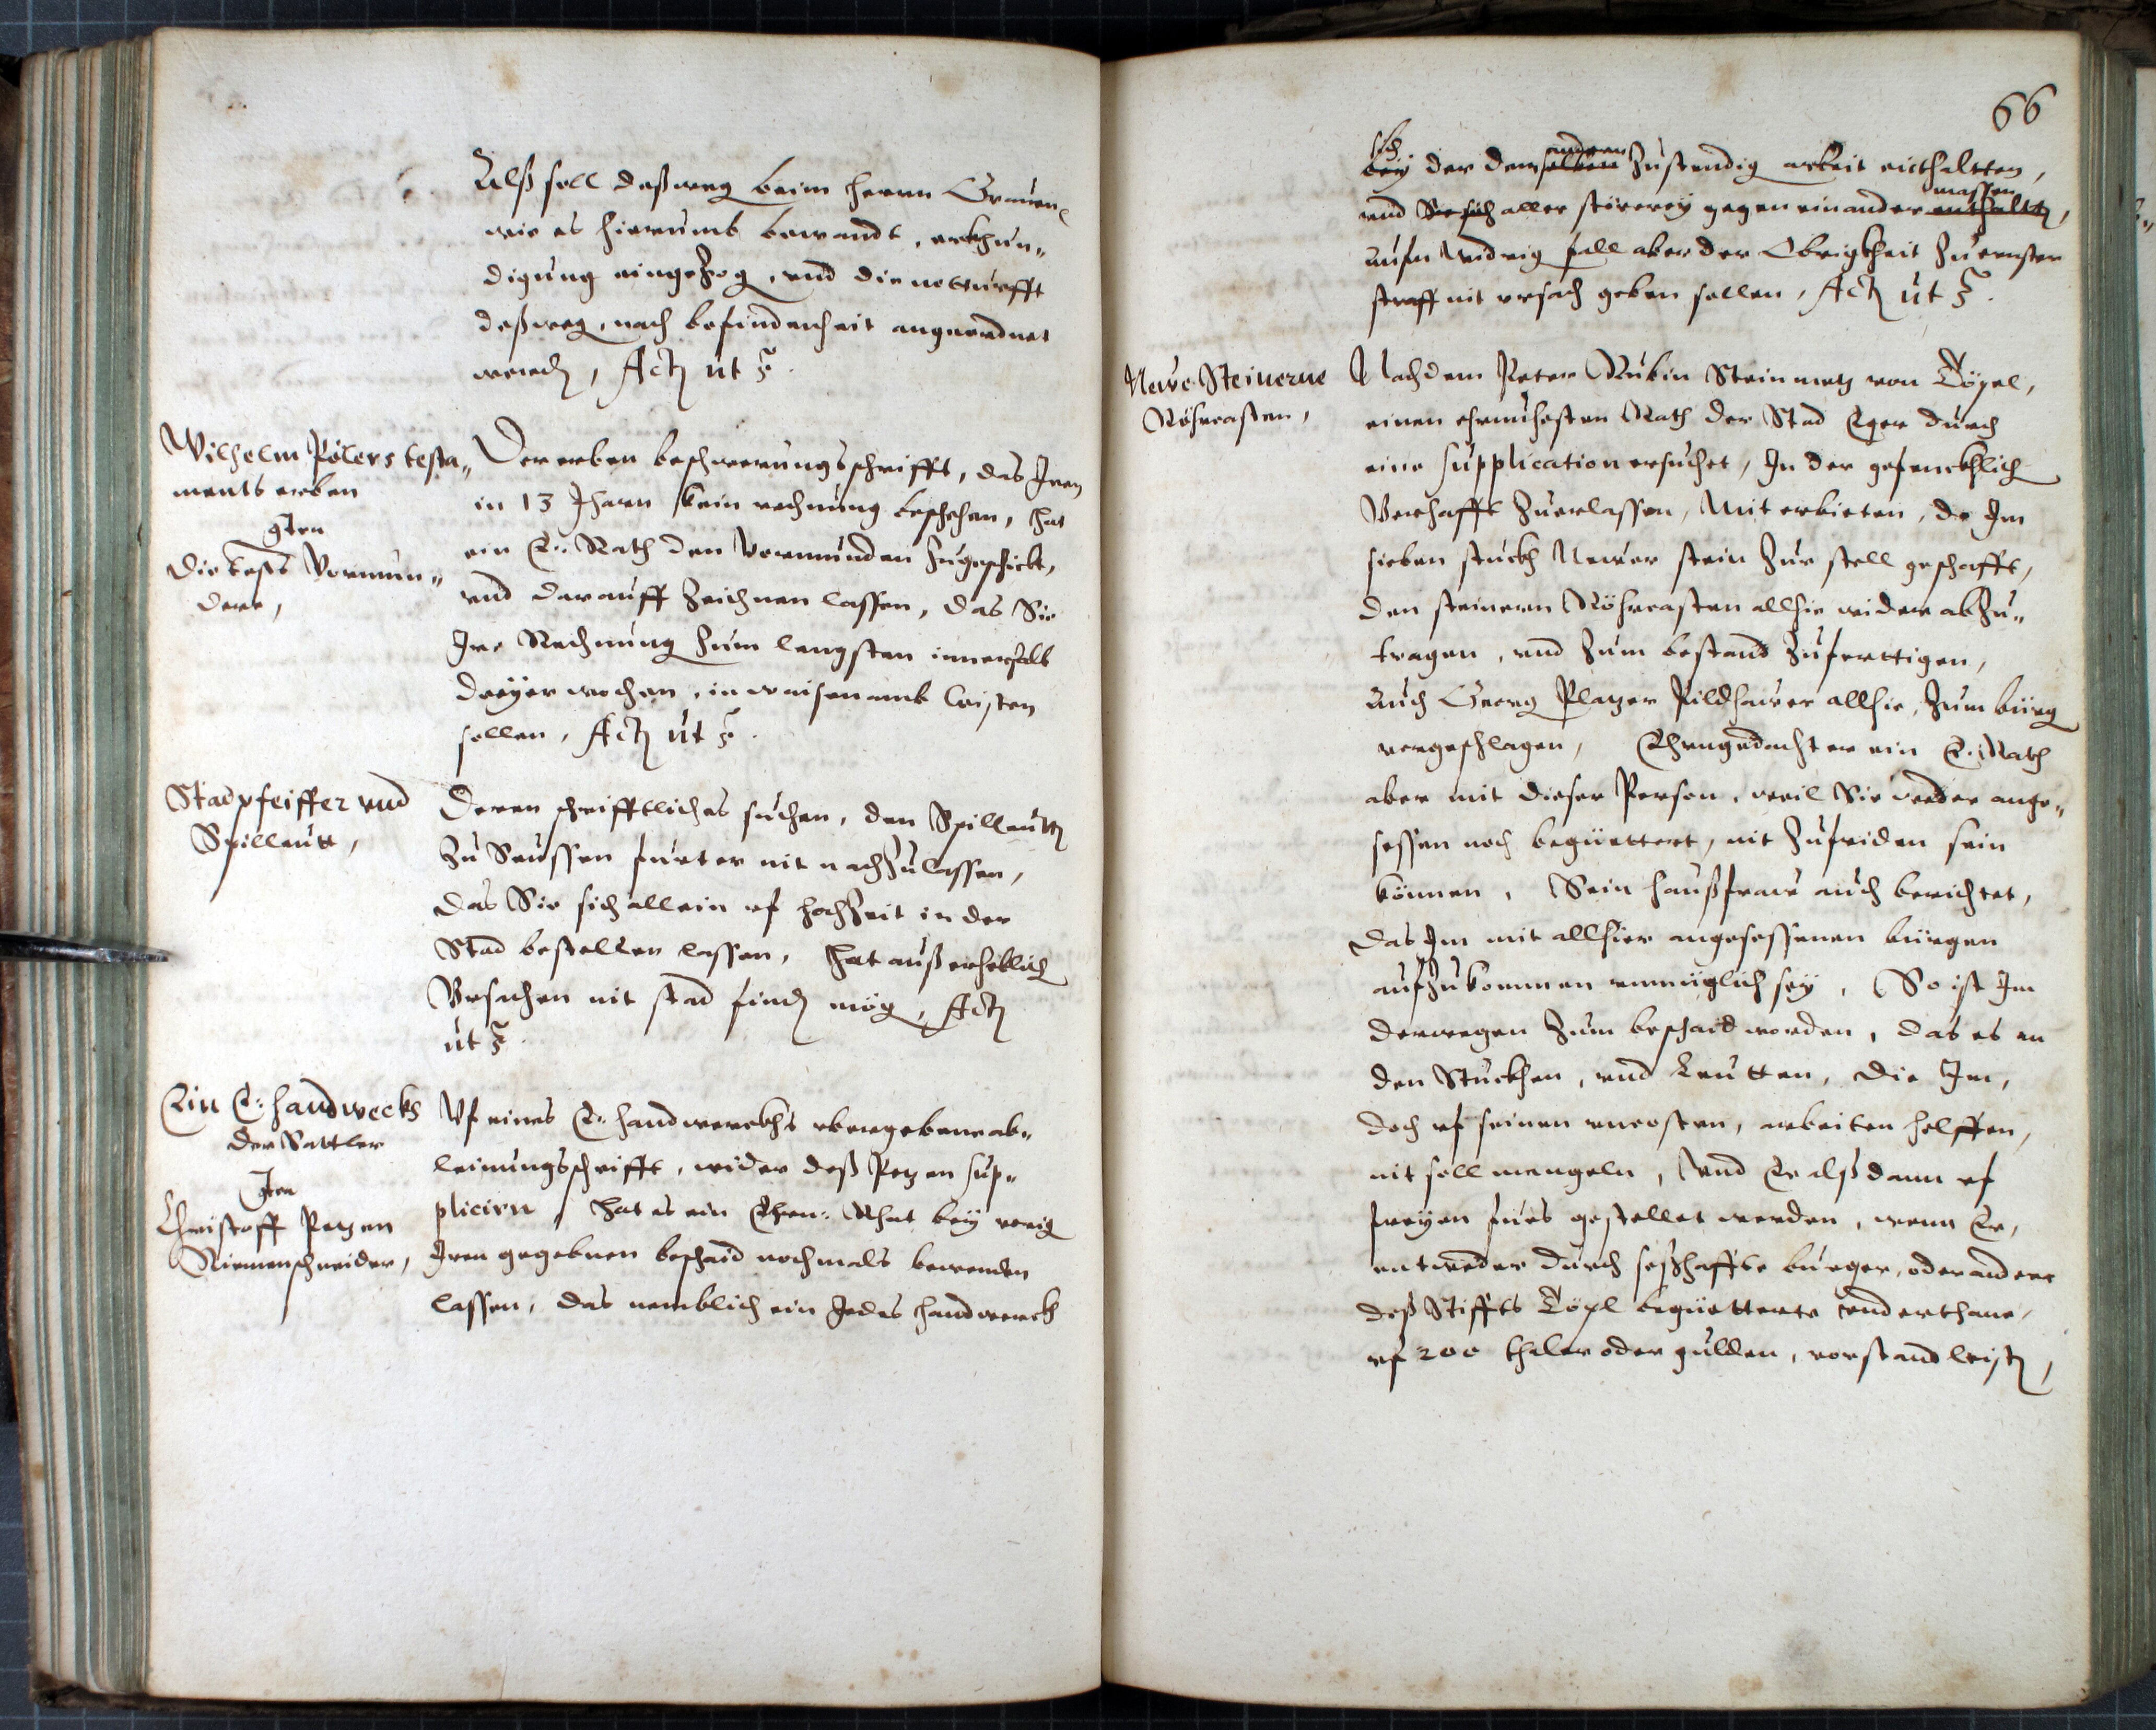 Alß soll deßweg beim herrn Grauen
wie es hierumb bewandt, erkhun„
digung eingezog, vnd die notturfft
deßweg, nach befindenheit angeordnet
werdn, Actn ut s.
Wilhelm Pölers testa„
ments erben
gten
die test Vormun„
dere,
Der erben beschwerungsschrifft, das Iren
in 13 Jharn kein rechnung beschehen, hat
ein E: Rath den Vormunden zugeschickt,
vnd darauff zeichnen lassen, das Sie
Ire Rechnung zum lengsten innerhalb
dreyer wochen, in waisenamb leisten
sollen, Actn ut s.
Stadpfeiffer vnd
Spilleutt,
Deren schrifftliches suchen, den Spilleuttn
zu Seussen furter nit nachzulassen,
das Sie sich allein vf hochzeit in der
Stad bestellen lassen, hat auß erheblich
Vrsachen nit stad findn mög, Actn
ut s.
Ein E: handwecks
der Sattler
gten
Christoff Petzen
Riemenschneider,
Vf eines E: handwerckhs vbergebene ab„
leinungsschrifft, wider deß Petzen sup„
plicirn, hat es ein Ehrn: Rhat bey vorig
Iren gegebnen beschaid nochmals bewenden
lassen, das nemblich ein Jedes handwerck
66
sich anderen
bey der demselben zustendig arbeit enthaltten,
massen
vnd Sie sich aller störerey gegen einander enthalttn,
aufm widrig fall aber der Obrigkheit zu ernster
straff nit vrsach geben sollen, Actn ut s.
Newe Steinerne
Röhrcasten,
Nachdem Peter Rubin Steinmetz von Töpel,
einen ehrnuhesten Rath der Stad Eger durch
eine supplication ersuchet, In der gefencklich
Verhafft zuerlassen, Mit erbieten, do Im
sieben stuckh Newer stein zur stell geschafft,
den steinern Röhrcasten allhie wider abzu„
tragen, vnd zum bestand zufertigen,
auch Georg Platzer Pildhawer allhie, zum bürg
vorgeschlagen, Ehrngedachter ein E: Rath
aber mit dieser Person, weil Sie weder ange„
sessen noch begüettert, nit zufriden sein
können, Sein haußfraw auch berichtet,
das Im mit allhier angesessenen bürgen
aufzukommen vnmüglich sey, So ist Im
derwegen zum beschaid worden, das es an
den Stuckhen, vnd Leutten, die Im,
doch vf seinen vncosten, arbeiten helffen,
nit soll mangeln, Vnd Er alßdann vf
freyen fues gestellet werden, wenn Er,
entweder durch seßhaffte burger, oder andere
deß Stiffts Töpl begüetterte vnderthane,
vf 200 thaler oder gulden, vorstand leistn,